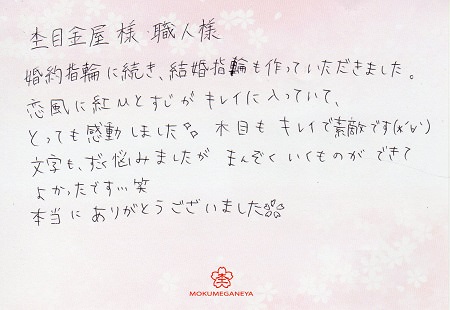 杢目金屋様・職人様
婚約指輪に続き、結婚指輪も作っていただきました。
恋風に紅ひとすじがキレイに入っていて、
とっても感動しました 木目もキレイで素敵です(*'∀')
文字も、すごく悩みましたが まんぞくいくものができて
よかったです… 笑
本当にありがとうございました
MOKUMEGANEYA